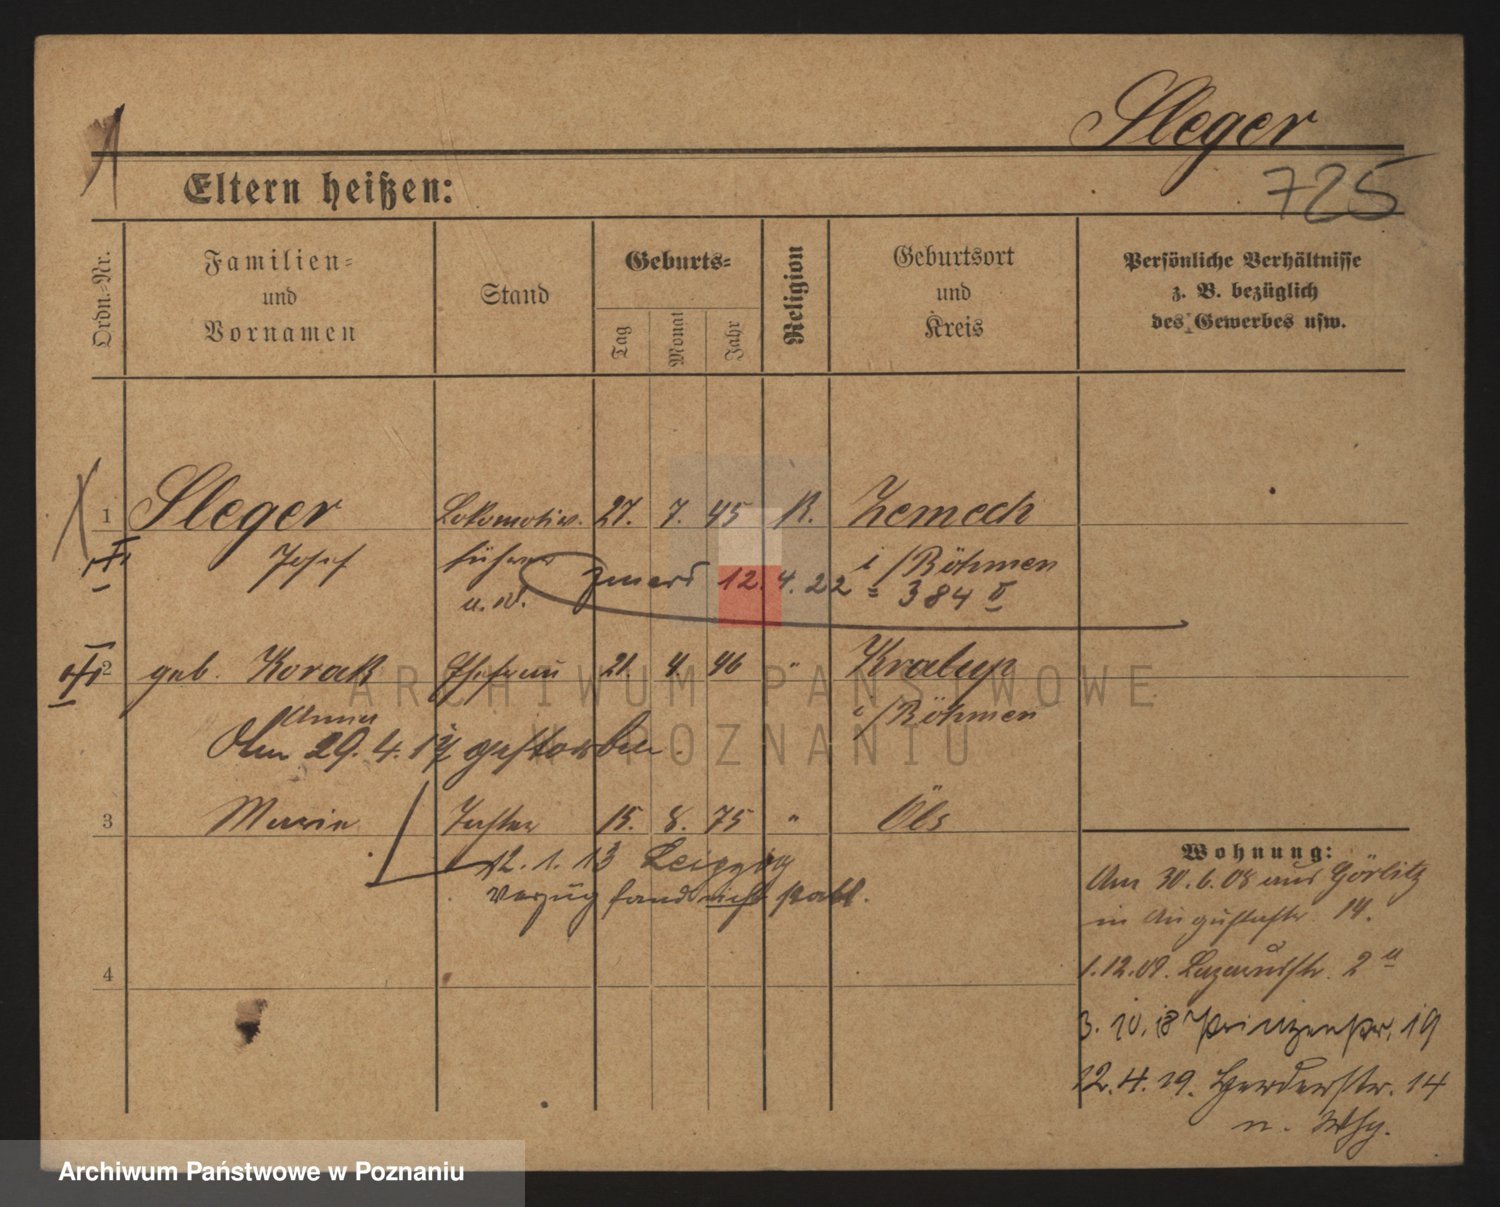 Sleger
725
Eltern heißen:
Ordn.-Nr.
Familien-
und
Vornamen
Stand
Geburts-
Tag
Monat
Jahr
Religion
Geburtsort
und
Kreis
Persönliche Verhältnisse
z. B. bezüglich
des Gewerbes usw.
1 Sleger Lokomotiv. 27. 7. 45 K. Zemech
Josef führer i/Böhmen
u. W. zmarł 12.4.22 = 384
2 geb. Korak Ehefrau 21. 4. 46 " Kralup
Anna i/Böhmen
Am 29.4.17 gestorben.
3 Marie Tochter 15. 8. 75 " Öls
12.1.13 Leipzig
Verzug fand nicht statt.
4
Wohnung:
Am 30.6.08 aus Görlitz
in Augustastr. 14.
1.12.09. Lazarusstr. 2
3.10.18 Prinzenstr. 19
12.4.19. Herderstr. 14
n. Whg.
ARCHIWUM PAŃSTWOWE
W POZNANIU
Archiwum Państwowe w Poznaniu